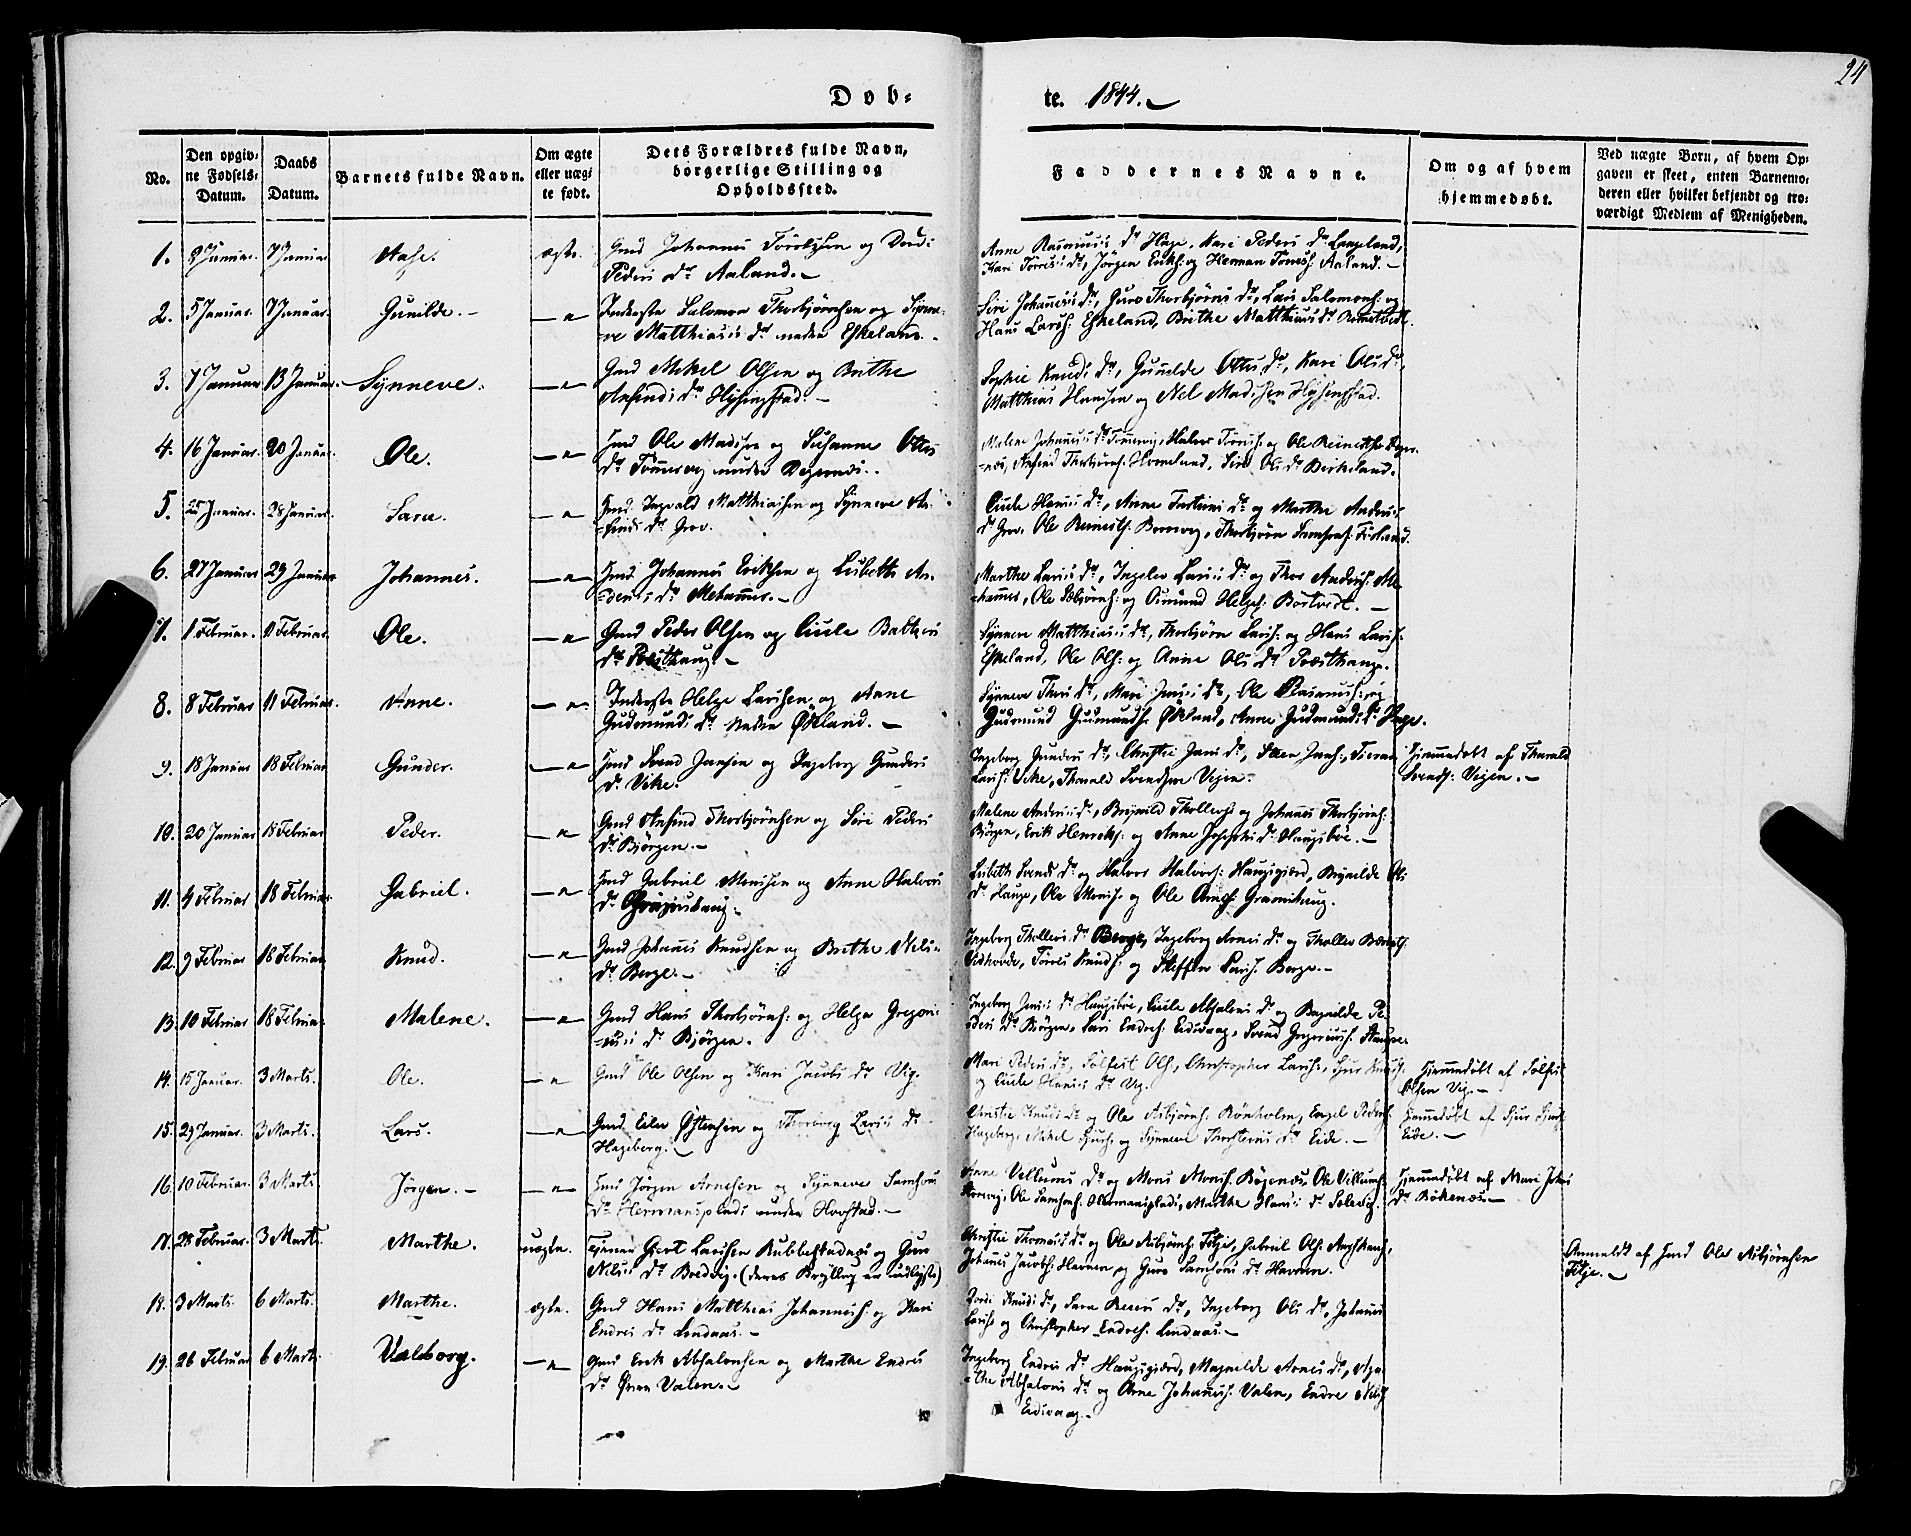 24
Døb-
te. 1844.
No.
Den opgiv-
ne Fødsels-
Datum.
Daabs
Datum.
Barnets fulde Navn.
Om ægte
eller uægt
te født.
Dets Forældres fulde Navn,
borgerlige Stilling og
Opholdssted.
Faddernes Navne.
Om og af hvem
hjemmedøbt.
Ved uægte Børn, af hvem Op-
gaven er skeet, enten Barnemo-
deren eller hvilket bekjendt og tro-
værdigt Medlem af Menigheden.
1. 2 Januar. 7 Januar Aase. ægte. Gmd Johannes og
Peders Dr. Aaland.
Anne Rasmuus Dr Hage, Kari Peders Dr Langeland,
Kari Törres Dr, Jörgen Eriks: og Herman Törres: Aaland.
2. 5 Januar. 7 Januar. Gunilde. — " Inderste Salomon Thorbjörnsen og Synne-
ve Matthias Dr nedre Eskeland.
Siri Johannes Dr, Guro Thorbjörns Dr, Lars Salomons: og
Hans Lars: Eskeland, Brithe Matthias Dr
3. 7 Januar 13 Januar. Synneve. — " Gmd Mikel Olsen og Brithe
Anfinds Dr Hysingstad.
Sophie Knuds Dr, Gunilde Ottes Dr, Kari Ols Dr,
Matthias Hansen og Nel Madsen Hysingstad.
4. 16 Januar. 20 Januar. Ole. — " Hmd Ole Madsen og Susanne Ottes
Dr Tömmervig under
Malene Johannes Dr Tömmervig, Halvor og Ole
Anfind Thorbjörns: Hovland, Siri Ols Dr Birkeland.
5. 25 Januar. 28 Januar. Sara. — " Gmd Ingvald Matthiassen og Synneve An-
finds Dr Grov.
Cicile Hans Dr, Anne Dr og Marthe Anders
Dr Grov, Ole Thorbjörn
6. 27 Januar 29 Januar Johannes. — " Hmd Johannes Eriksen og Lisbeth An-
ders Dr Mehammer.
Marthe Lars Dr, Ingelev Lars Dr og Thor Anders: Me-
hammer, Ole og Helges:
7. 1 Februar. 11 Februar. Ole. — " Gmd Peder Olsen og Cicile Baltzers
Dr Præsthaug.
Synneve Matthias Dr, Thorbjörn Lars: og Hans Lars:
Eskeland, Ole Ols: og Anne Ols Dr Præsthaug.
8. 8 Februar 11 Februar. Anne. — " Inderste Helge Larsen og Anne
Gudmunds Dr nedre Økland.
Synneve Thors Dr, Mari Jens Dr, Ole Rasmus: og
Gudmund Gudmunds: Økland, Anne Gudmunds Dr Hage.
9. 18 Januar 18 Februar Gunder. — " Hmd Svend Jensen og Ingeborg Gunders
Dr Vike.
Ingeborg Gunders Dr, Christie Jens Dr, Jens:,
Lars: Vike, Tharald Svendsen Vigen.
Hjemmedöbt af Tharald
Svends: Vigen.
10. 20 Januar 18 Februar Peder. — " Gmd Anfind Thorbjörnsen og Siri Peders
Dr Björgen.
Malene Anders Dr, Brynild Thollevs: og Johannes Thorbjörns:
Björgen, Erik Henriks: og Anne Josephs Dr Haugsböe.
11. 4 Februar 18 Februar Gabriel. — " Hmd Gabriel Monsen og Anne Halvors
Dr
Lisbeth Svends Dr og Halvor Halvors: Haugsgjerd, Brynilde Ols
Dr Hauge, Ole Mons: og Ole Arnes:
12. 9 Februar 18 Februar Knud. — " Gmd Johannes Knudsen og Brithe Nels
Dr Berge.
Ingeborg Thollevs Dr Berge, Ingeborg Arnes Dr og Thollev
Vedhovde, Törres Knuds: og Steffen Lars: Berge.
13. 10 Februar 18 Februar Malene. — " Gmd Hans Thorbjörns: og Helga Gregori-
us Dr Björgen.
Ingeborg Jens Dr Haugsböe, Cicile Absalons Dr og Bagnilde Pe-
ders Dr Björgen, Lars Endres: Eidsvaag, Svend Gregorius:
14. 15 Januar. 3 Marts. Ole. — " Gmd Ole Olsen og Kari Jacobs Dr Vig.
Mari Peders Dr, Solfest Ols:, Christopher Lars:, Sjur Knuds:
og Cicile Hans Dr Vig.
Hjemmedöbt af Solfest
Olsen Vig.
15. 29 Januar. 3 Marts. Lars. — " Gmd Eiler Østensen og Thorborg Lars Dr
Hageberg.
Christie Knuds Dr og Ole Asbjörns: Rönholm, Engel Peders:
Hageberg, Mikel Sjurs: og Synneve Thorsteins Dr Eide.
Hjemmedöbt af Sjur Sjurs:
Eide.
16. 10 Februar. 3 Marts. Jörgen. — " Hmd Jörgen Arnesen og Synneve Samsons
Dr Hermansplads under Hovstad.
Anne Vellums Dr og Mons Mons: Bögenæs, Ole Villums:
Ole Samsons: Hermansplads, Marthe Hans Dr
Hjemmedöbt af Mari Johns
Dr Bökenæs.
17. 28 Februar. 3 Marts. Marthe. uægte. Tjener Giert Larsen Rubbestadnæs og Guri
Nels Dr (deres Bryllup er indlyst)
Christie Thomas Dr og Ole Asbjörns: Fitje, Gabriel Ols:
Johannes Jacobs: Havnen og Guro Samsons Dr Havnen.
Anmeldt af Gmd Ole Asbjörnsen
Fitje.
18. 3 Marts. 6 Marts. Marthe. ægte. Gmd Hans Matthias Johannes: og Kari
Endres Dr Lindaas.
Knuds Dr, Sara Dr, Ingeborg Ols Dr, Johannes
Lars: og Christopher Endres: Lindaas.
19. 26 Februar 6 Marts. Valborg. — " Gmd Erik Absalonsen og Marthe Endres
Dr Valen.
Ingeborg Endres Dr Haugsgjerd, Magnilde Arnes Dr, Aga-
the Absalons Dr og Arne Johannes: Valen, Endre Nels:
Eidsvaag.